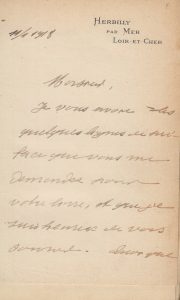 HERBILLY
PAR MER
LOIR-ET-CHER
1918
Monsieur,
Je vous envoie les
quelques lignes de
que vous me
demandez pour
votre livre, et que je
suis heureux de vous
donner.